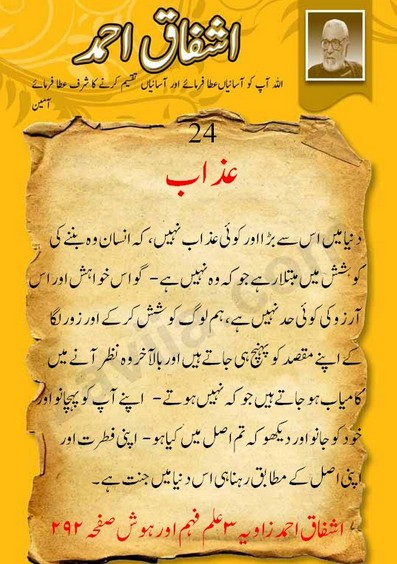 اشفاق احمد
اللہ آپ کو آسانیاں عطا فرمائے اور آسانیاں تقسیم کرنے کا شرف عطا فرمائے
آمین
24
عذاب
دنیا میں اس سے بڑا اور کوئی عذاب نہیں، کہ انسان وہ بننے کی
کوشش میں مبتلا رہے جو کہ وہ نہیں ہے - گو اس خواہش اور اس
آرزو کی کوئی حد نہیں ہے، ہم لوگ کوشش کر کے اور زور لگا
کے اپنے مقصد کو پہنچ ہی جاتے ہیں اور بالآخر وہ نظر آنے میں
کامیاب ہو جاتے ہیں جو کہ نہیں ہوتے - اپنے آپ کو پہچانو اور
خود کو جانو اور دیکھو کہ تم اصل میں کیا ہو - اپنی فطرت اور
اپنی اصل کے مطابق رہنا ہی اس دنیا میں جنت ہے۔
اشفاق احمد زاویہ ۳ علم فہم اور ہوش صفحہ ۲۹۲